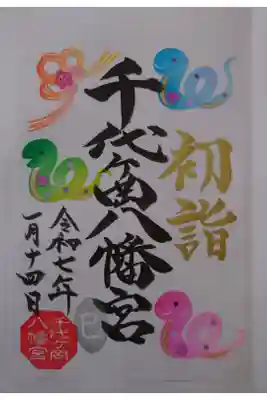 初詣
千代ヶ岡八幡宮
巳
令和七年
一月十四日
千代ヶ岡
八幡宮